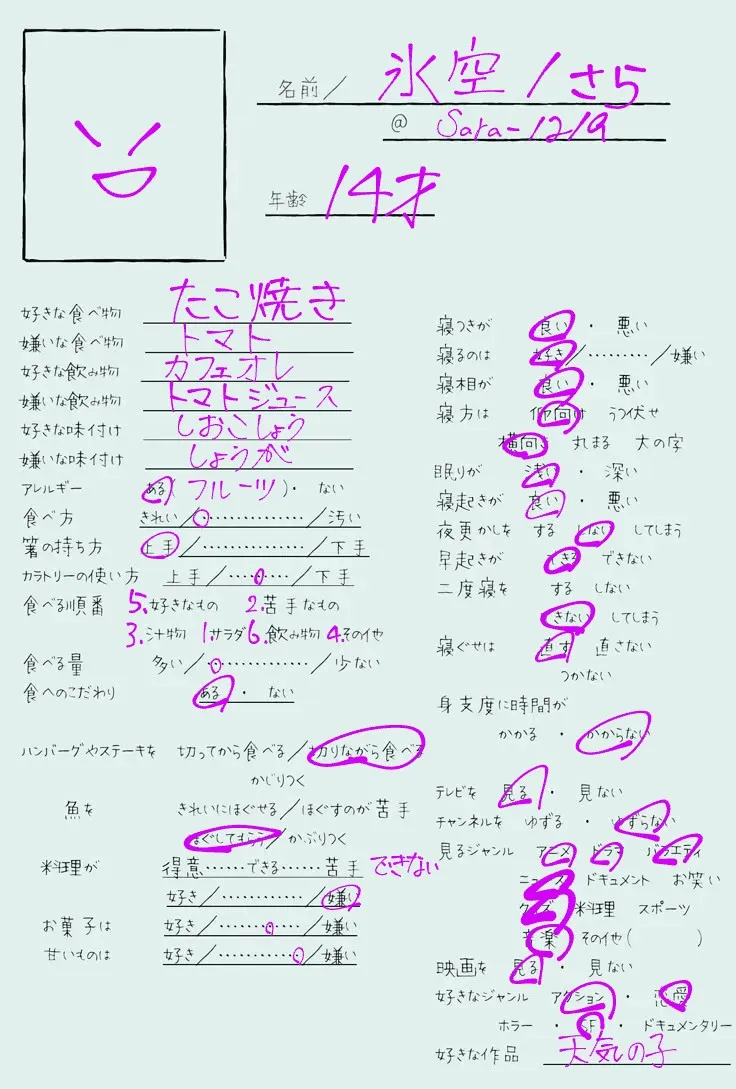 名前/ 氷空/さら
@ Sara-1219
年齢 14才
好きな食べ物 たこ焼き
嫌いな食べ物 トマト
好きな飲み物 カフェオレ
嫌いな飲み物 トマトジュース
好きな味付け しおこしょう
嫌いな味付け しょうが
アレルギー ある(フルーツ)・ ない
食べ方 きれい/・・・・・・・・・・・・・/汚い
箸の持ち方 上手/・・・・・・・・・・・・・/下手
カラトリーの使い方 上手/・・・・・・・・/下手
食べる順番 5.好きなもの 2.苦手なもの
3.汁物 1サラダ 6.飲み物 4.その他
食べる量 多い/・・・・・・・・・・・・・/少ない
食へのこだわり ある ・ ない
ハンバーグやステーキを 切ってから食べる/切りながら食べる
かじりつく
魚を きれいにほぐせる/ほぐすのが苦手
ほぐしてもらう/かぶりつく
料理が 得意・・・・・・できる・・・・・・苦手 できない
好き/・・・・・・・・・・・/嫌い
お菓子は 好き/・・・・・・・・・・・/嫌い
甘いものは 好き/・・・・・・・・・・・/嫌い
寝つきが 良い ・ 悪い
寝るのは 好き/・・・・・・・・・/嫌い
寝相が 良い ・ 悪い
寝方は 仰向け うつ伏せ
横向き 丸まる 大の字
眠りが 浅い ・ 深い
寝起きが 良い ・ 悪い
夜更かしを する しない してしまう
早起きが できる できない
二度寝を する しない
きない してしまう
寝ぐせは 直す 直さない
つかない
身支度に時間が
かかる ・ かからない
テレビを 見る ・ 見ない
チャンネルを ゆずる ・ ゆずらない
見るジャンル アニメ ドラマ バラエティ
ニュース ドキュメント お笑い
クイズ 料理 スポーツ
音楽 その他( )
映画を 見る ・ 見ない
好きなジャンル アクション ・ 恋愛
ホラー ・ SF ・ ドキュメンタリー
好きな作品 天気の子